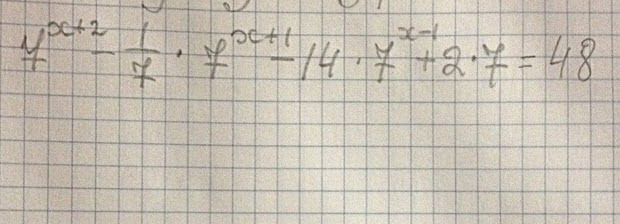 7^{x+2} - \frac{1}{7} \cdot 7^{x+1} - 14 \cdot 7^{x-1} + 2 \cdot 7 = 48